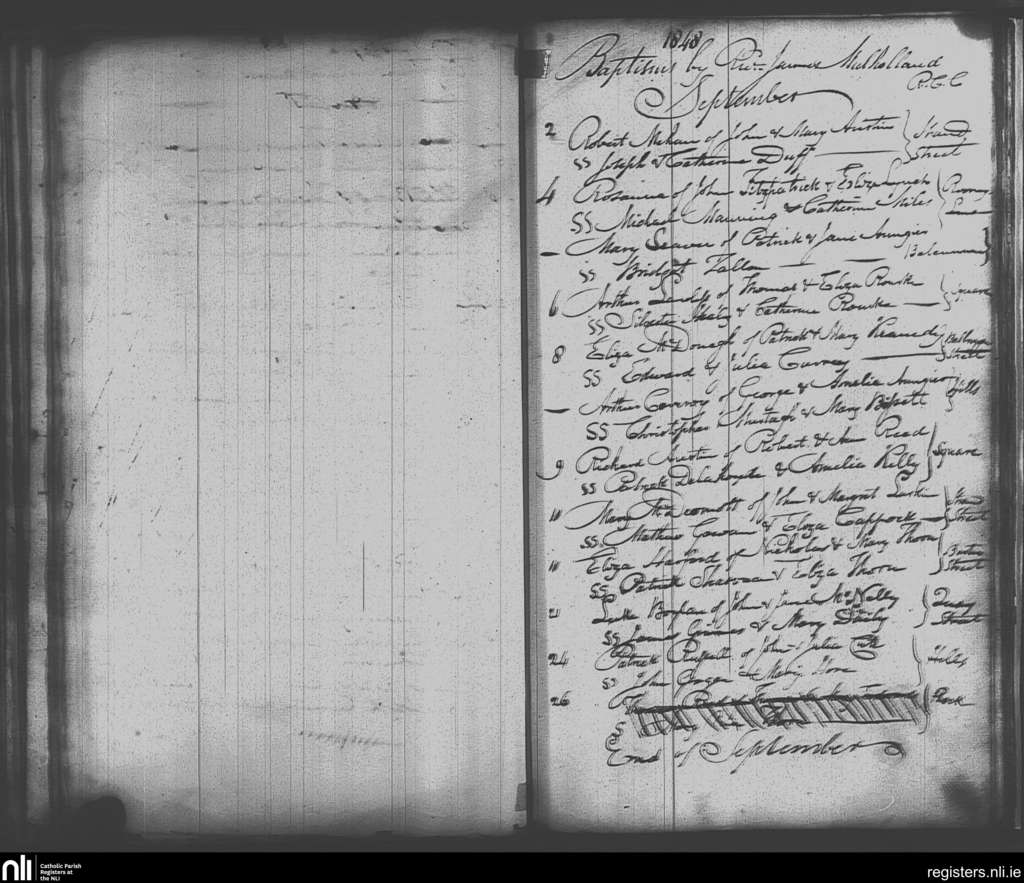 1848
Baptisms by Revd. James Mulholland
R.C.C
September
2 Robert Mehan of John & Mary Austin Strand
SS Joseph & Catherine Duff Street
4 Rosanna of John Fitzpatrick & Eliza Lynch
SS Michael Manning & Catherine Miles Lane
— Mary Seaver of Patrick & Jane
SS Bridget Fallon
6 Arthur of Thomas & Eliza Rourke Square
SS Silvester & Catherine Rourke
8 Eliza McDonagh of Patrick & Mary Kennedy
SS Edward & Julia Conroy Street
— Arthur Conroy of George & Amelia Hills
SS Christopher & Mary
9 Richard Austin of Robert & Ann Reed Square
SS Patrick Delahoyde & Amelia Kelly
10 Mary McDermott of John & Margret Larkin Strand
SS Mathew & Eliza Cappock Street
11 Eliza Harford of Nicholas & Mary Thorn
SS Patrick & Eliza Thorn Street
21 Luke Boylan of John & Jane McNally Quay
SS James Grimes & Mary Street
24 Patrick Russell of John & Julia Hills
SS John & Mary Hore
26 Rock
SS
End of September
nli
Catholic Parish
Registers at
the NLI
registers.nli.ie